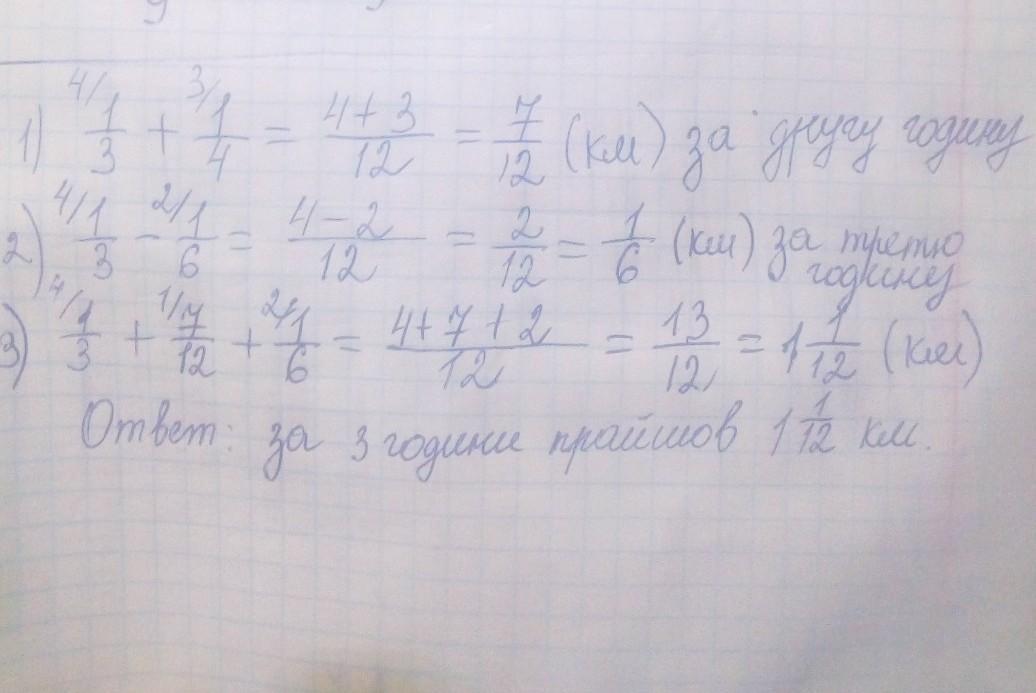 1) 4/ 1/3 + 3/ 1/4 = (4+3)/12 = 7/12 (км) за другу годину
2) 4/ 1/3 - 2/ 1/6 = (4-2)/12 = 2/12 = 1/6 (км) за третю годину
3) 4/ 1/3 + 1/ 7/12 + 2/ 1/6 = (4+7+2)/12 = 13/12 = 1 1/12 (км)
Ответ: за 3 години пройшов 1 1/12 км.